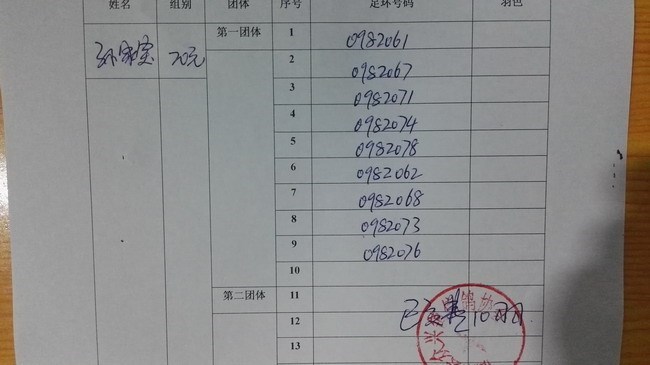 姓名 组别 团体 序号 足环号码 羽色
70元 第一团体 1 0982061
2 0982067
3 0982071
4 0982074
5 0982078
6 0982062
7 0982068
8 0982073
9 0982076
10
第二团体 11
12
13